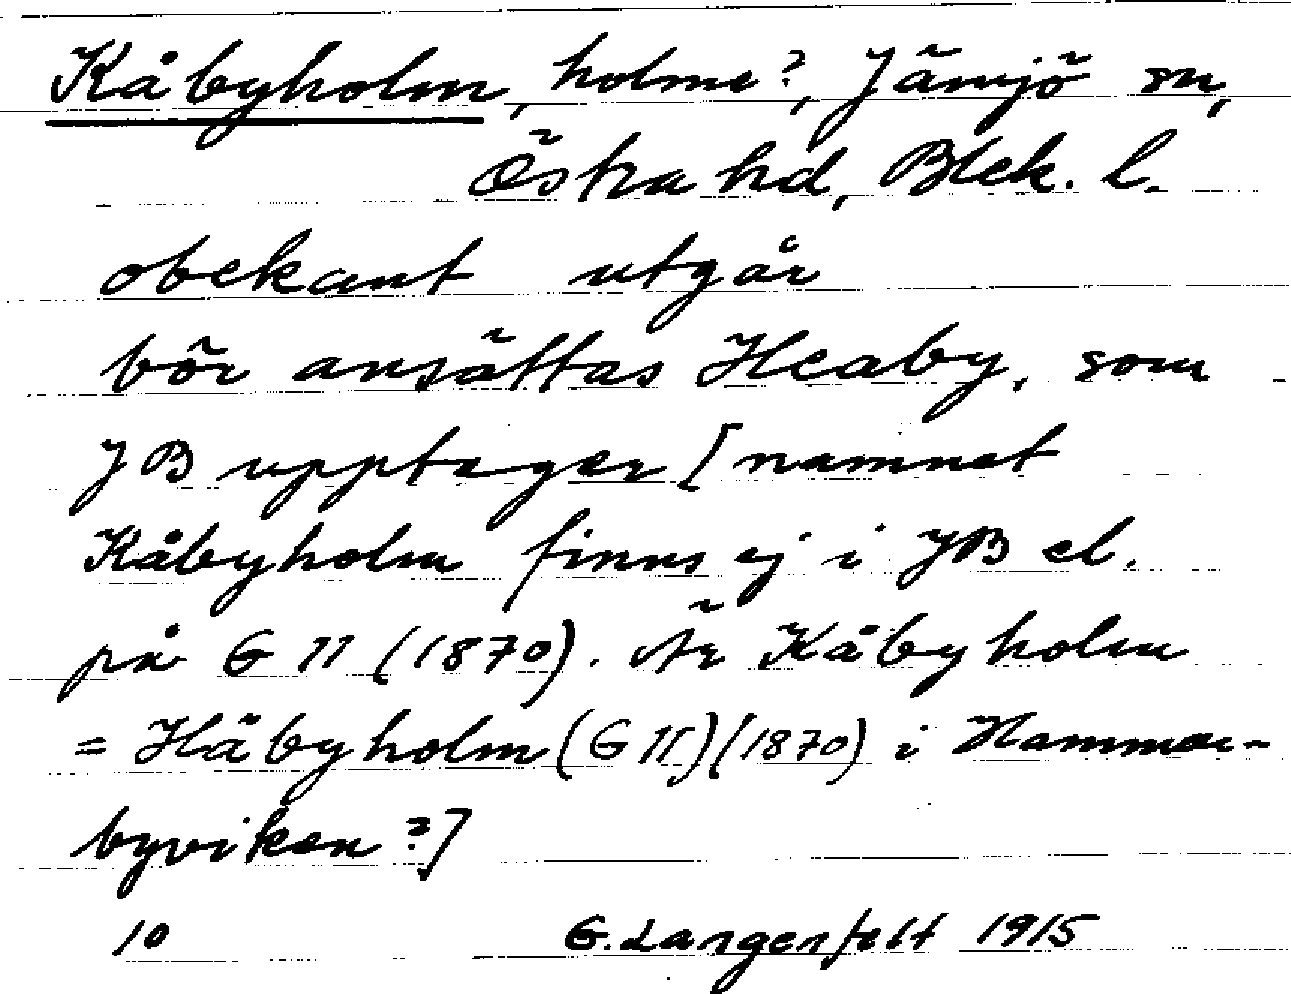 Kåbyholm, holme?, Jämjö sn,
Östra hd, Blek. l.
obekant utgår
bör ansättas Heaby, som
JB upptager [namnet
Kåbyholm finns ej i JB el.
på G II (1870). Är Kåbyholm
= Håbyholm (G II) (1870) i Hammar-
byviken?]
10 G. Langenfelt 1915